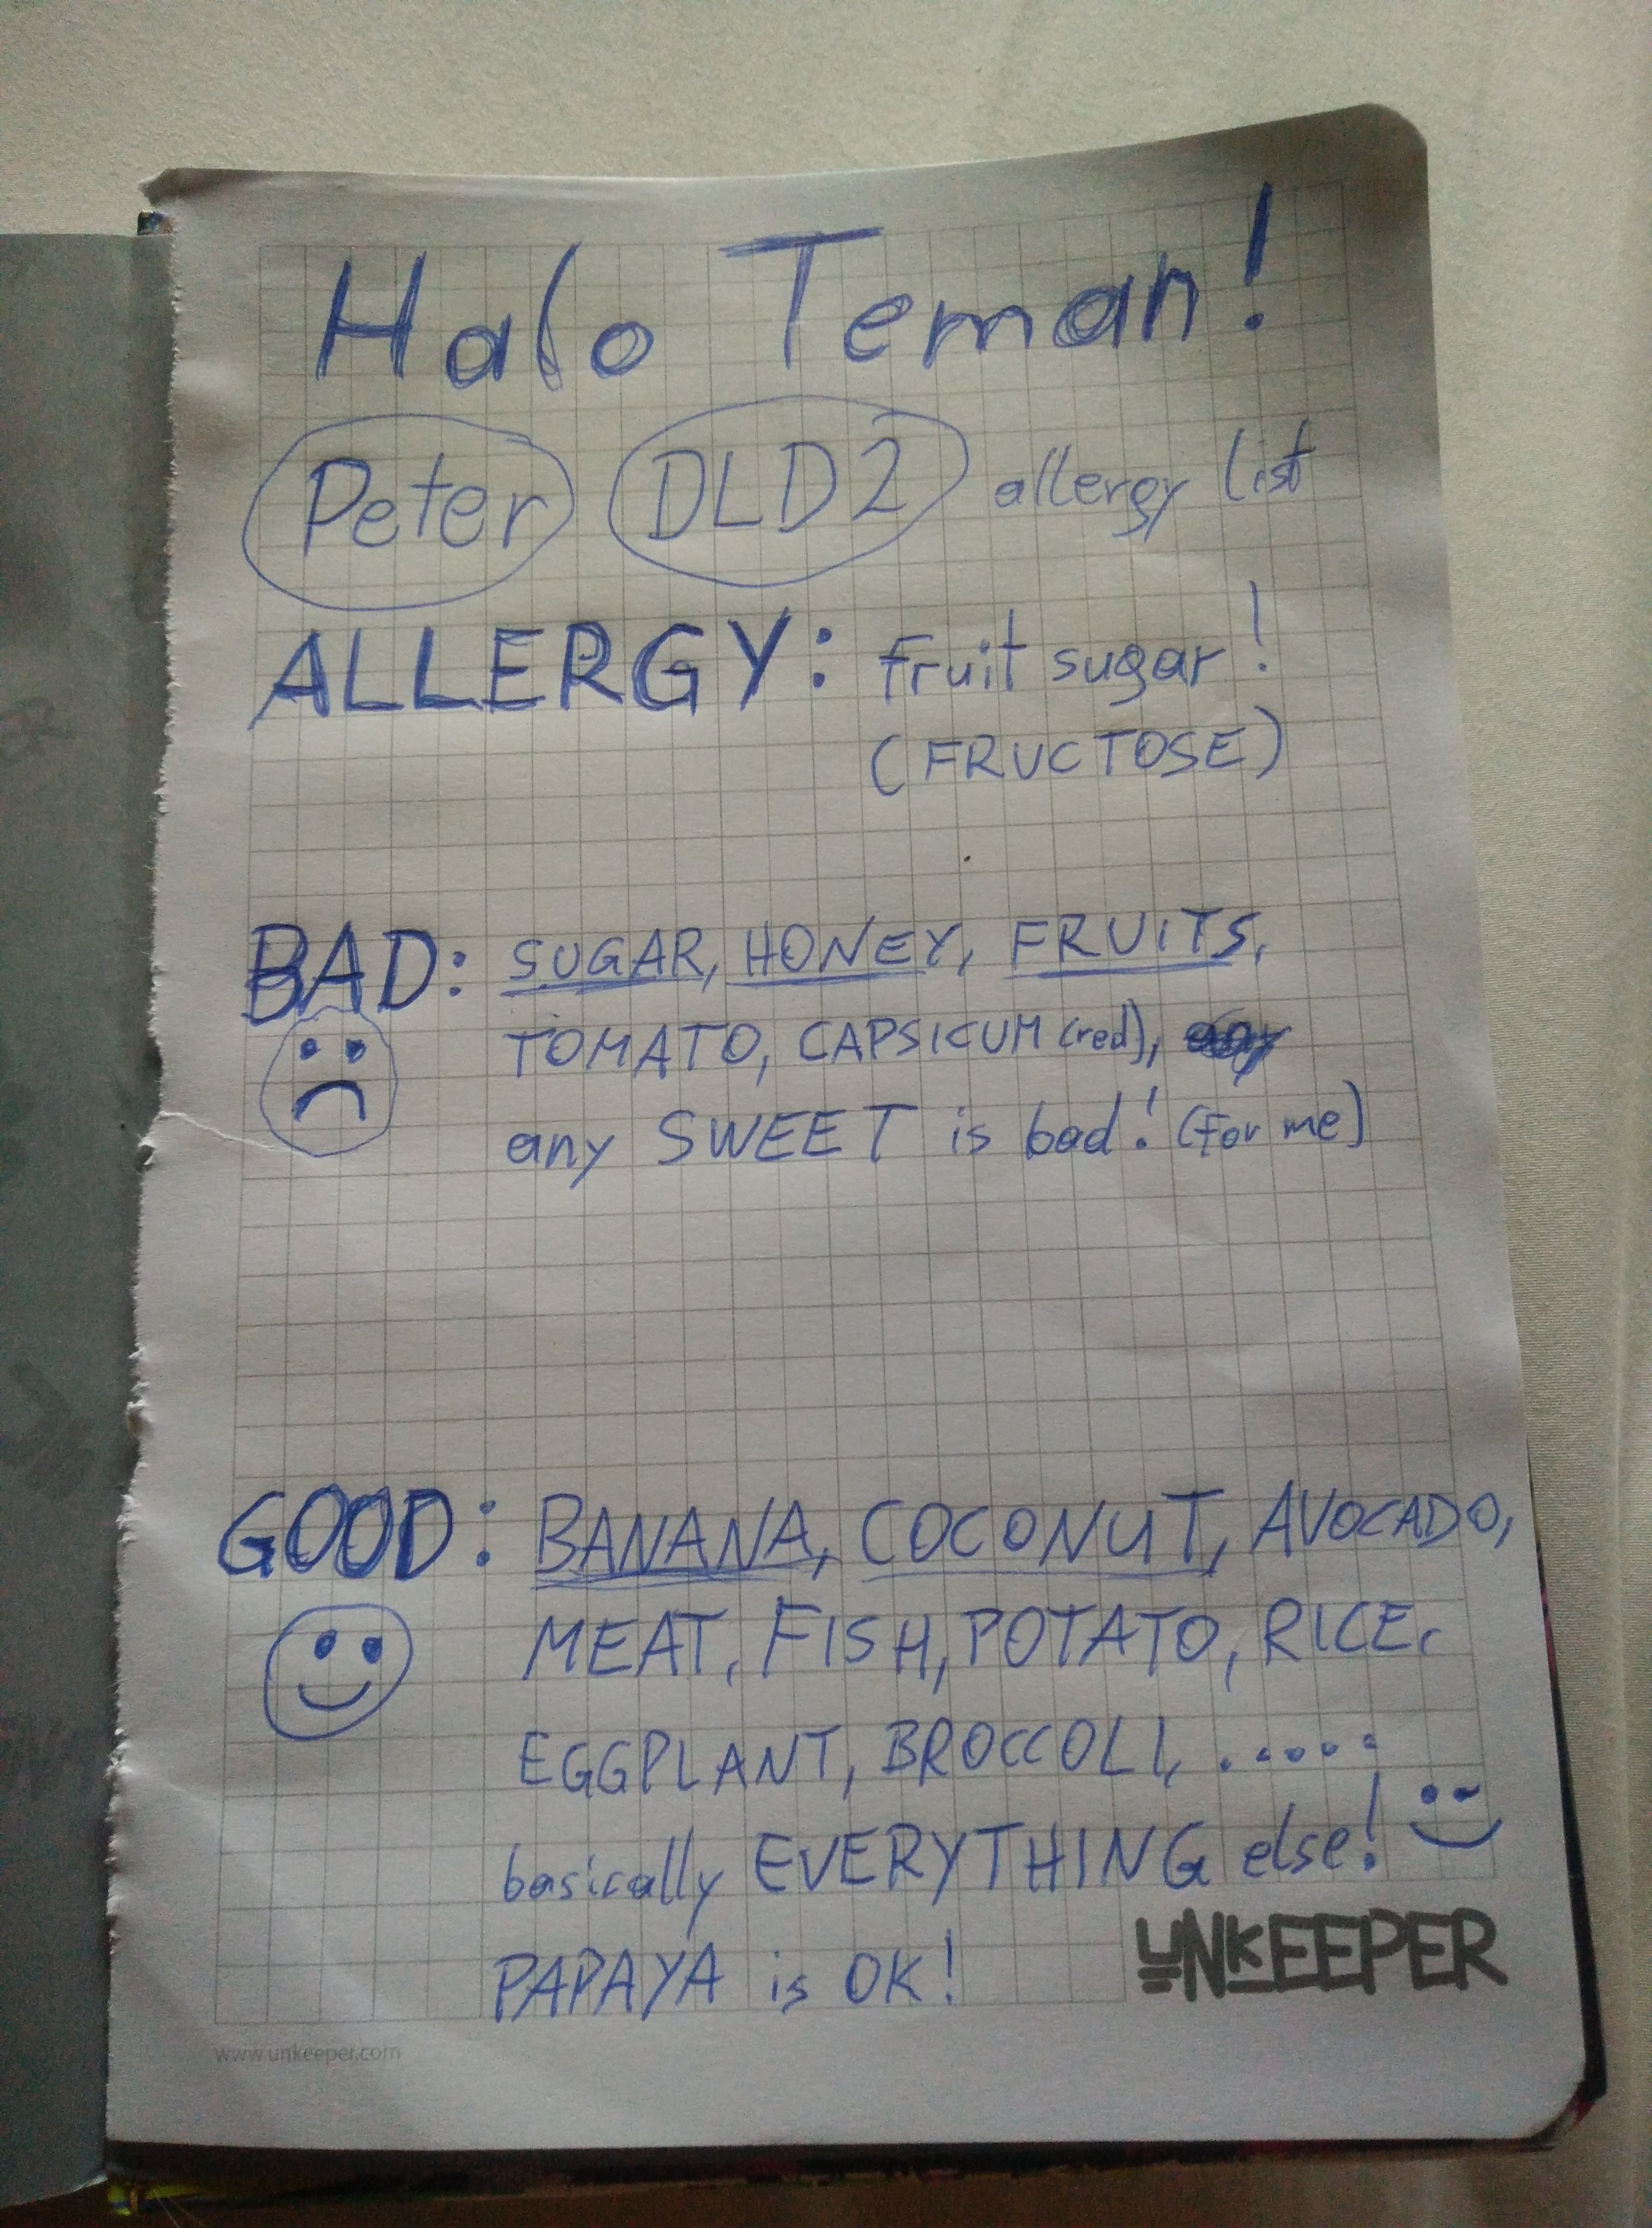 Halo Teman!
Peter DLD2 allergy list
ALLERGY: fruit sugar!
(FRUCTOSE)
BAD: SUGAR, HONEY, FRUITS,
TOMATO, CAPSICUM (red),
any SWEET is bad! (for me)
GOOD: BANANA, COCONUT, AVOCADO,
MEAT, FISH, POTATO, RICE,
EGGPLANT, BROCCOLI, ......
basically EVERYTHING else!
PAPAYA is OK!
UNKEEPER
www.unkeeper.com